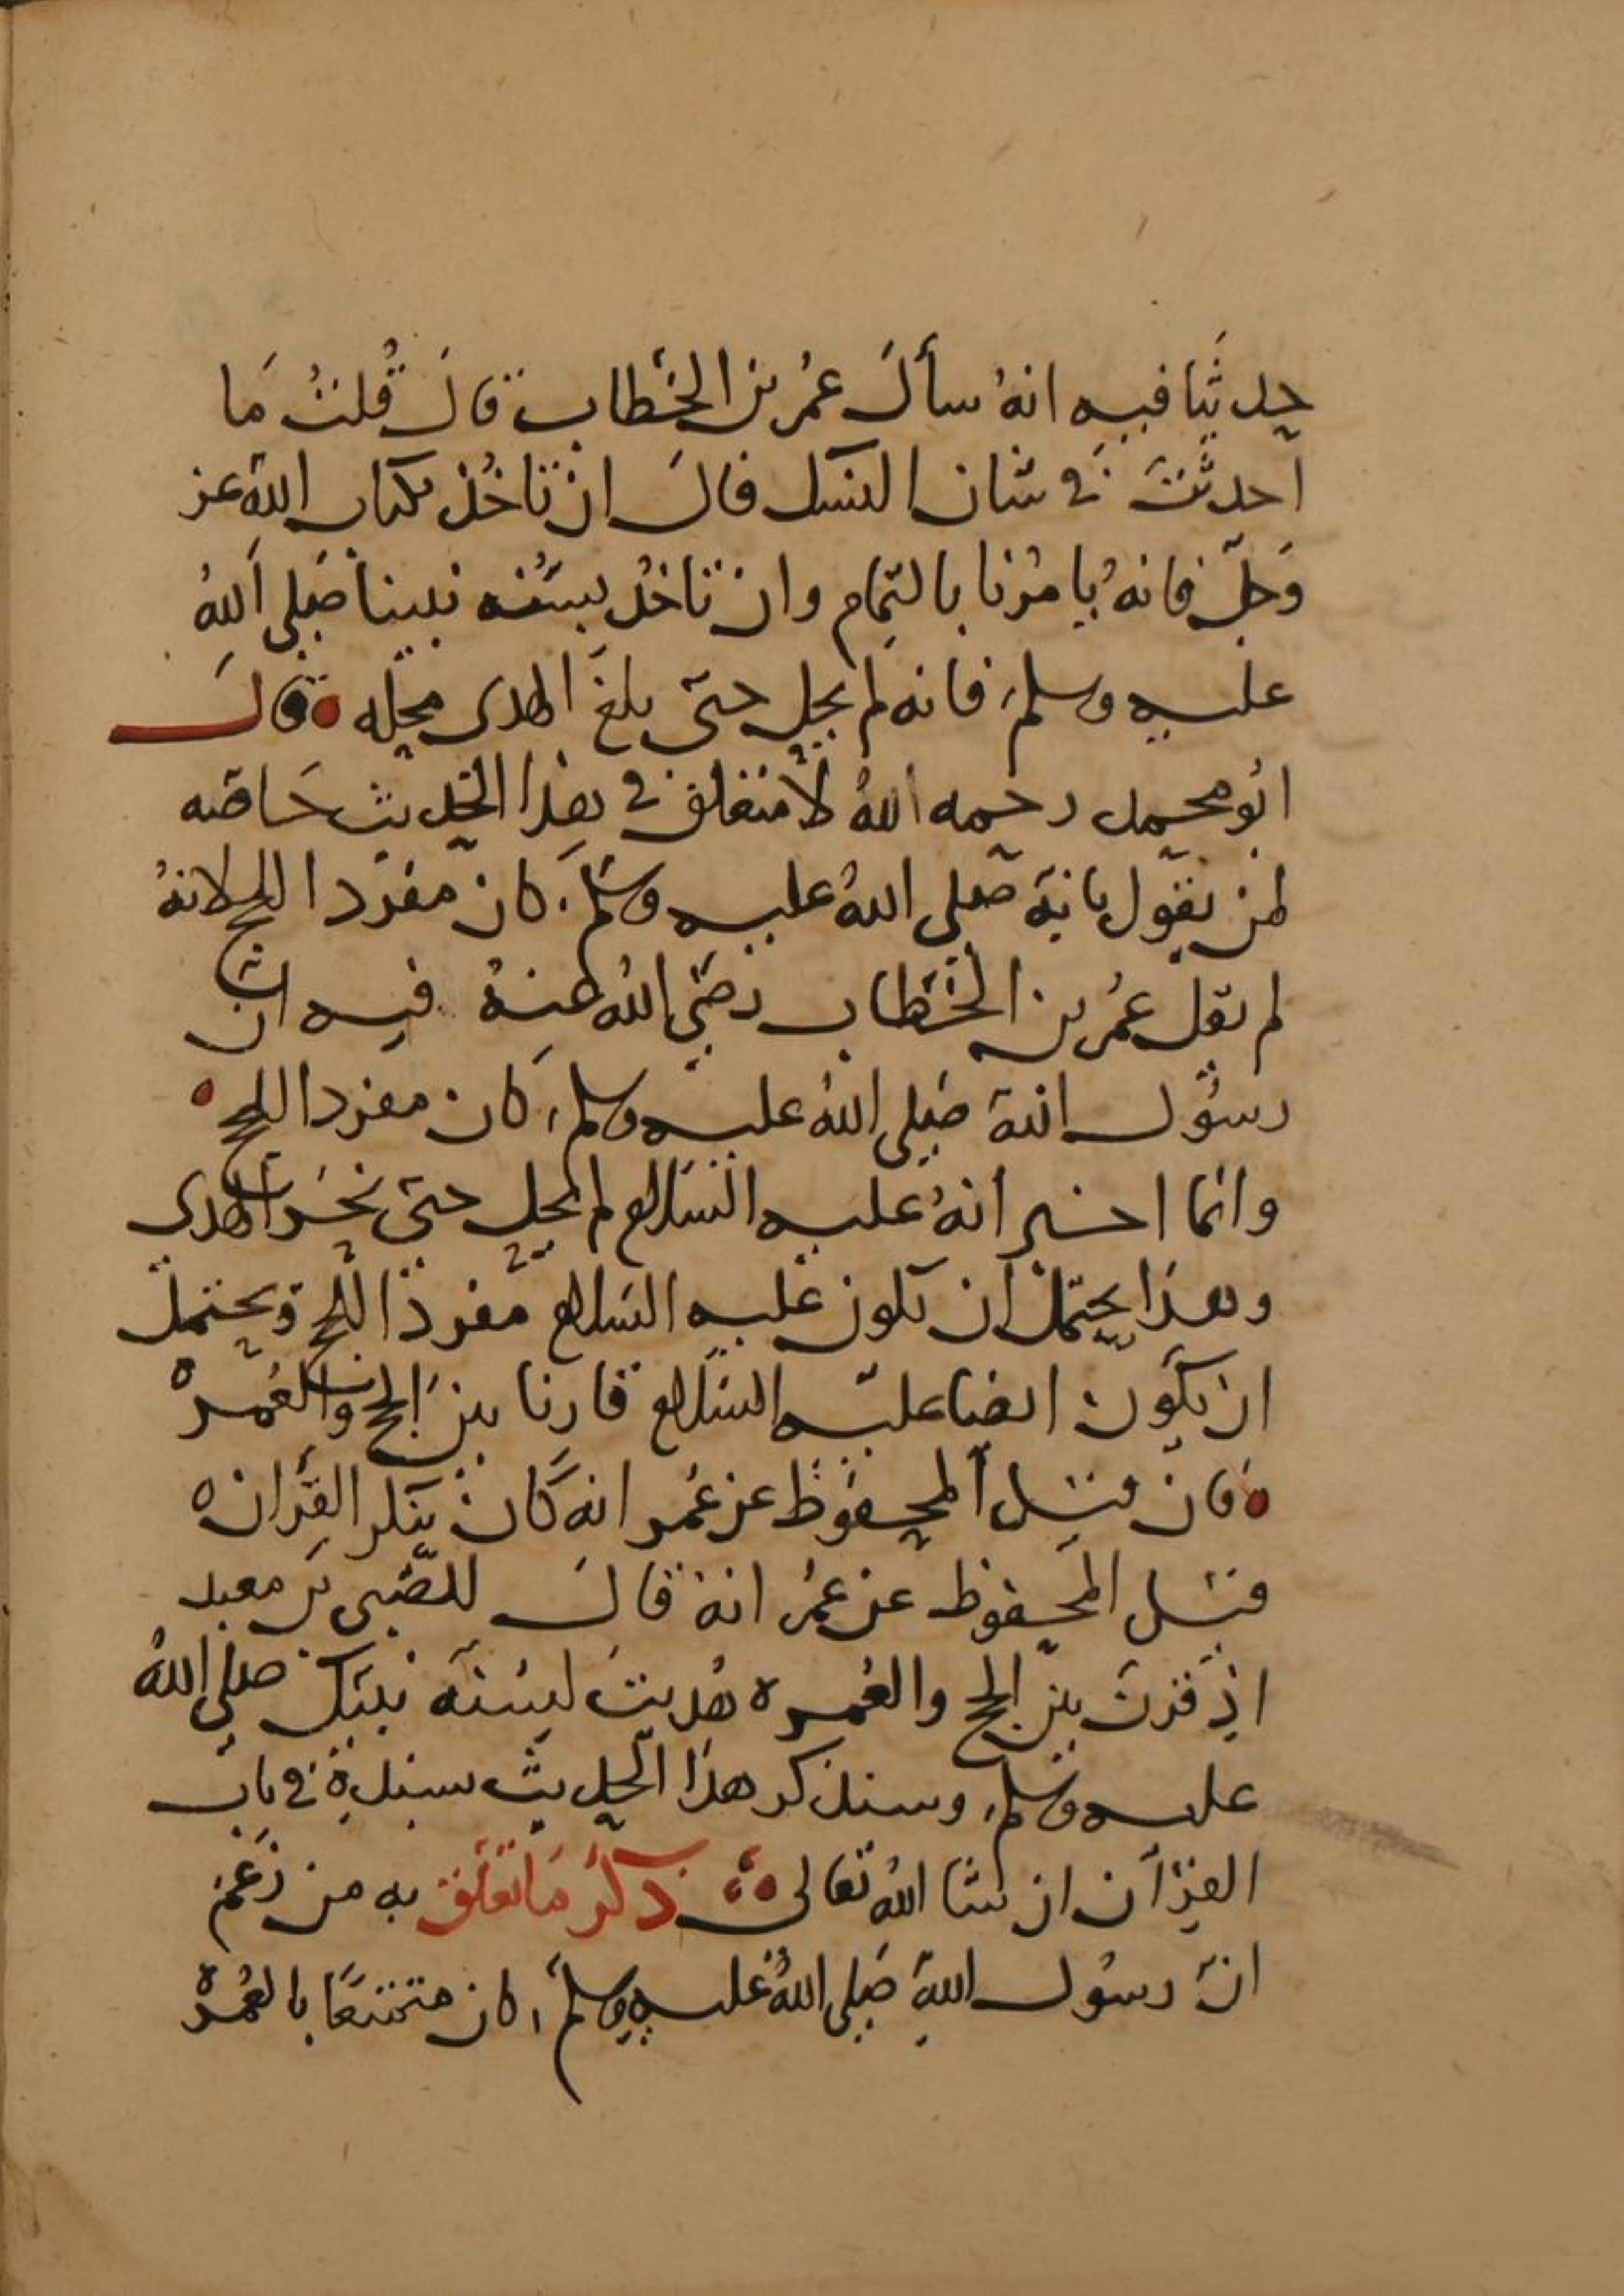 حديثا فيه انهُ سأل عمُر بن الخطاب قال قُلتُ مَا
احدثتَ في شان النسك قال ان تاخُذ بكتاب الله عز
وَجلّ فانهُ يامُرنا بالتمام وان تاخُذ بسنّه نبينا صَلى اللهُ
عليه وسلم فانه لم يحل حتى بلغَ الهدى محِله ٥ قالَ
ابُو محمد رحمه اللهُ لا متعلق في هذا الحديث خَاصّه
لمن يقول بانهُ صَلى اللهُ عليه وسَلم كان مفردا للحج لانهُ
لم يقل عمُر بن الخَطاب رضى اللهُ عنهُ فيه ان
رسُول الله صَلى اللهُ عليه وسلم كان مفردا للحج ٥
وانما اخبر انهُ عليه السَلام لم يحل حتى نحَر الهدى
وهذَا يحتمل ان يكون عليه السَلام مفردًا للحج ويحتمل
ان يكون ايضا عليه السَلام قارنا بين الحج والعُمره
٥ فان قيل المحفوظ عن عُمر انه كانَ ينكر القِران ٥
قيل المحفوظ عن عمُر انهُ قالَ للصّبى بن معبد
اذ قرن بين الحج والعُمره هُديتَ لسُنه نبيك صلى اللهُ
عليه وسلم وسنذكر هذا الحديث بسنده في باب
القرآن ان شا اللهُ تعالى ذكرُ مَا تعَلق به من زعَم
انّ رسُول الله صَلى اللهُ عليه وسلم كان متمتعًا بالعُمره